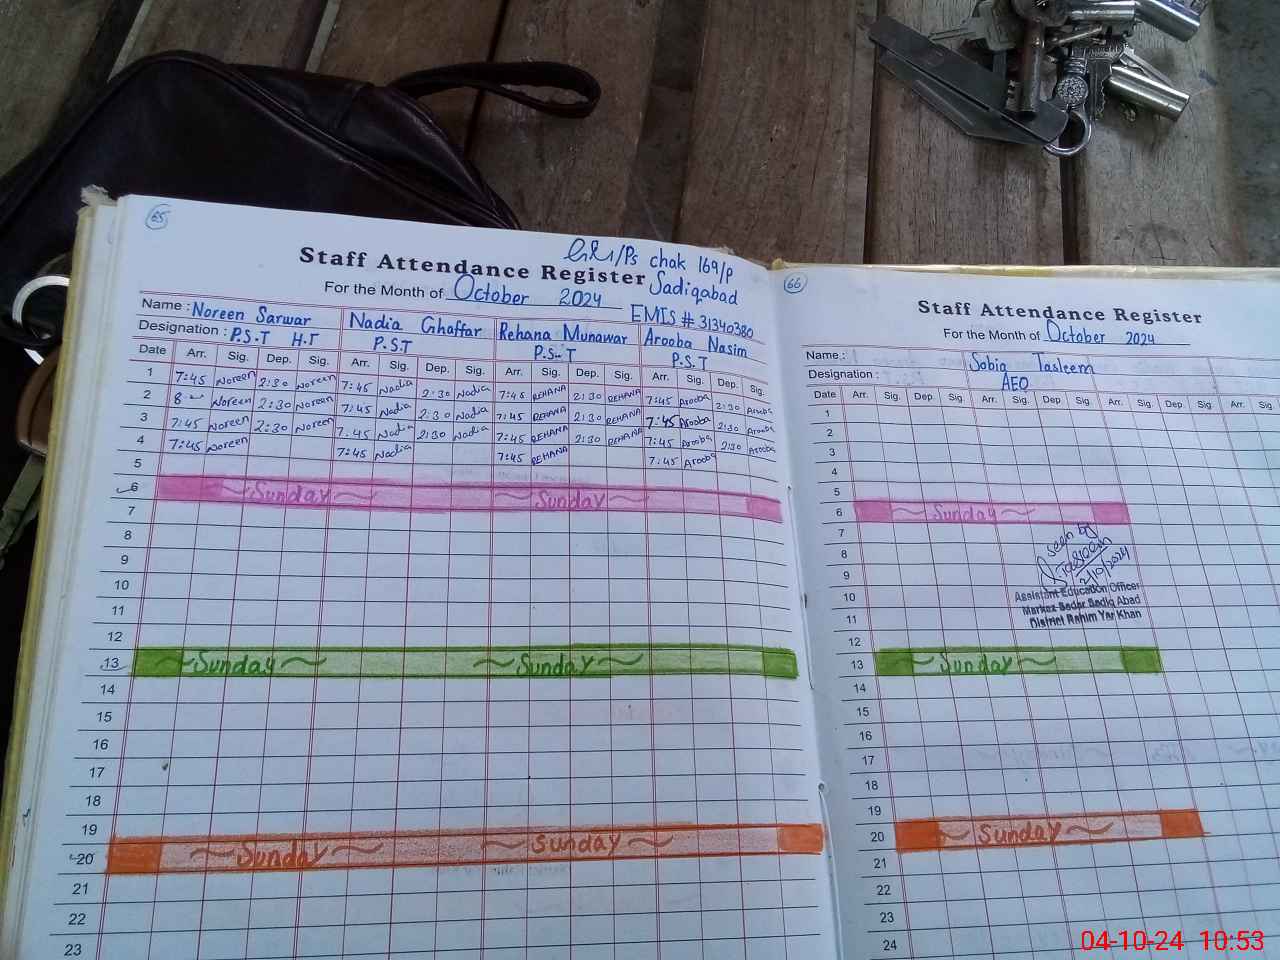 65
/Ps chak 169/p
Staff Attendance Register Sadiqabad
For the Month of October 2024
EMIS # 31340380
Name : Noreen Sarwar Nadia Ghaffar Rehana Munawar Arooba Nasim
Designation : P.S.T H.T P.S.T P.S-T P.S.T
Date Arr. Sig. Dep. Sig. Arr. Sig. Dep. Sig. Arr. Sig. Dep. Sig. Arr. Sig. Dep. Sig.
1 7:45 Noreen 2:30 Noreen 7:45 Nadia 2:30 Nadia 7:45 REHANA 2:30 REHANA 7:45 Arooba 2:30 Arooba
2 8- Noreen 2:30 Noreen 7:45 Nadia 2:30 Nadia 7:45 REHANA 2:30 REHANA 7:45 Arooba 2:30 Arooba
3 7:45 Noreen 2:30 Noreen 7:45 Nadia 2:30 Nadia 7:45 REHANA 2:30 REHANA 7:45 Arooba 2:30 Arooba
4 7:45 Noreen 7:45 Nadia 7:45 REHANA 7:45 Arooba
5
6 Sunday Sunday
7
8
9
10
11
12
13 Sunday Sunday
14
15
16
17
18
19
20 Sunday Sunday
21
22
23
66
Staff Attendance Register
For the Month of October 2024
Name : Sobia Tasleem
Designation : AEO
Date Arr. Sig. Dep. Sig. Arr. Sig. Dep. Sig. Arr. Sig. Dep. Sig. Arr. Sig.
1
2
3
4
5
6 Sunday
7
8
9
10
11
12
13 Sunday
14
15
16
17
18
19
20 Sunday
21
22
23
24
Seen by
Tasleem
2/10/2024
Assistant Education Officer
Markaz Sadar Sadiq Abad
District Rahim Yar Khan
04-10-24 10:53